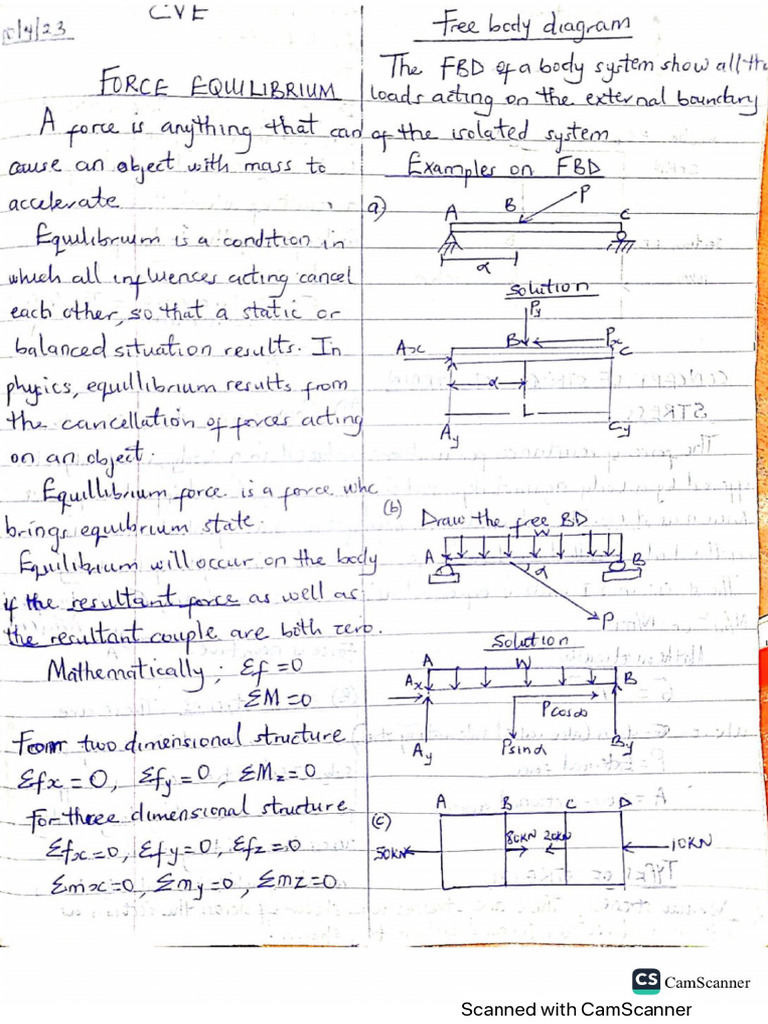 CVE
FORCE EQUILIBRIUM
A force is anything that can
cause an object with mass to
accelerate
Equilibrium is a condition in
which all influences acting cancel
each other, so that a static or
balanced situation results. In
physics, equillibrium results from
the cancellation of forces acting
on an object.
Equillibrium force is a force whc
brings equibrium state.
Equilibrium will occur on the body
if the resultant force as well as
the resultant couple are both zero.
Mathematically; Σf = 0
ΣM = 0
From two dimensional structure
Σfx = 0, Σfy = 0, ΣMz = 0
For three dimensional structure
Σfx = 0, Σfy = 0, Σfz = 0
Σmx = 0, Σmy = 0, Σmz = 0
Free body diagram
The FBD of a body system show all the
loads acting on the external boundary
of the isolated system
Examples on FBD
a)
A B P C
α
Solution
Py
Ax B Px C
α
L
Ay Cy
(b) Draw the free BD
W
A B
α
P
Solution
A W
Ax B
Pcosα
Ay Psinα By
(c)
A B C D
50KN 80KN 20KN 10KN
CS CamScanner
Scanned with CamScanner